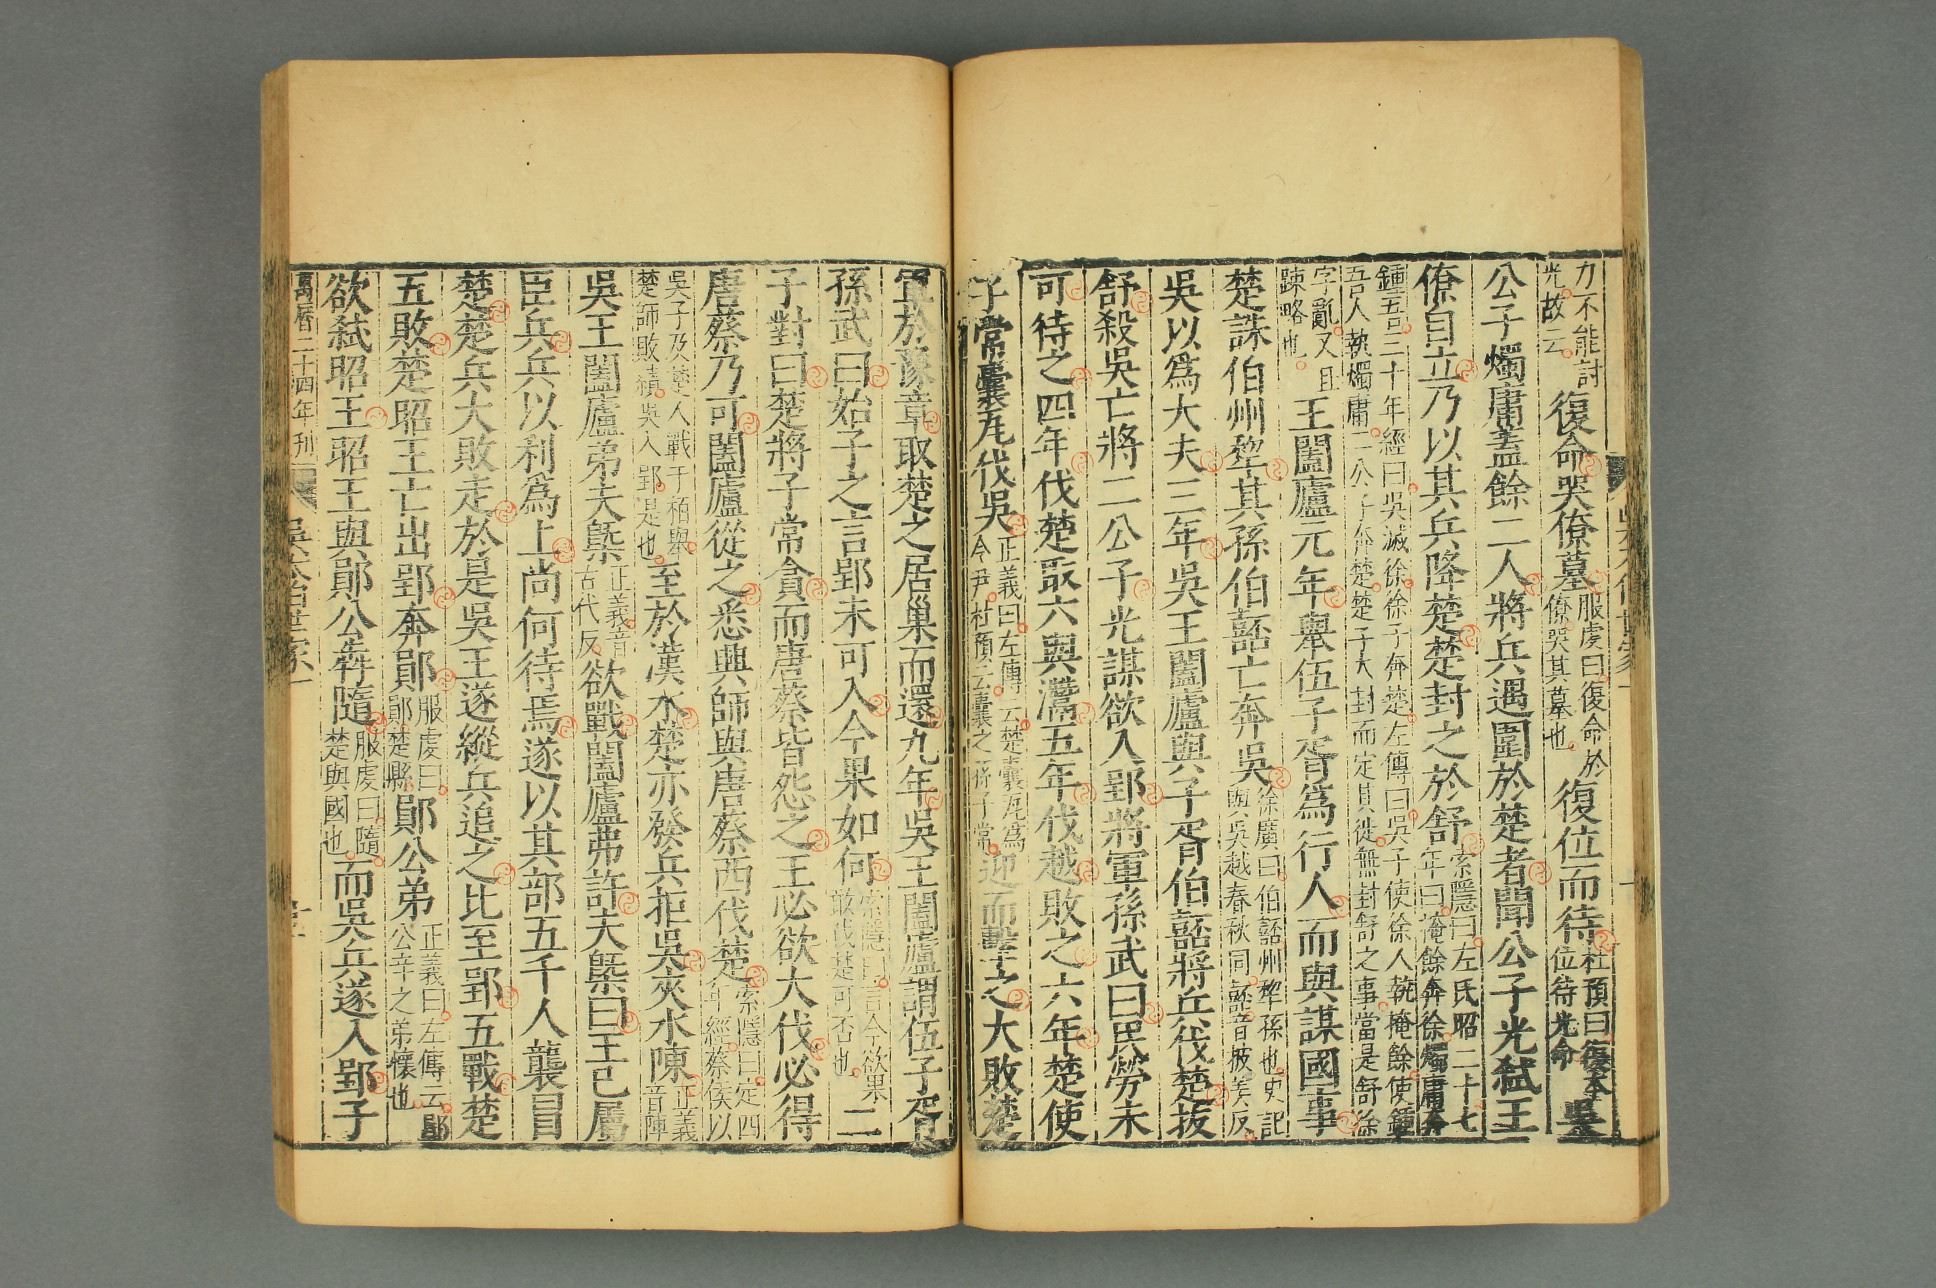 力不能討光故云復命哭僚墓服虔曰復命於僚哭其墓也復位而待杜預曰復本位待光命吳
公子燭庸蓋餘二人將兵遇圍於楚者聞公子光弒王
僚自立乃以其兵降楚楚封之於舒索隱曰左氏昭二十七年曰掩餘奔徐燭庸奔
鍾吾三十年經曰吳滅徐徐子奔楚左傳曰吳子使徐人執掩餘使鍾吾人執燭庸二公子奔楚楚子大封而定其徙無封舒之事當是舒徐
字亂又且踈略也王闔廬元年舉伍子胥爲行人而與謀國事
楚誅伯州犂其孫伯嚭亡奔吳徐廣曰伯嚭州犂孫也史記與吳越春秋同嚭音披美反
吳以爲大夫三年吳王闔廬與子胥伯嚭將兵伐楚拔
舒殺吳亡將二公子光謀欲入郢將軍孫武曰民勞未
可待之四年伐楚取六與灊五年伐越敗之六年楚使
子常囊瓦伐吳正義曰左傳云楚囊瓦爲令尹杜預云囊之孫子常迎而擊之大敗楚
軍於豫章取楚之居巢而還九年吳王闔廬謂伍子胥
孫武曰始子之言郢未可入今果如何索隱曰言今欲果敢伐楚可否也二
子對曰楚將子常貪而唐蔡皆怨之王必欲大伐必得
唐蔡乃可闔廬從之悉興師與唐蔡西伐楚索隱曰定四年經蔡侯以
吳子及楚人戰于栢舉楚師敗績吳入郢是也至於漢水楚亦發兵拒吳夾水陳正義音陣
吳王闔廬弟夫槩正義音古代反欲戰闔廬弗許夫槩曰王已屬
臣兵兵以利爲上尚何待焉遂以其部五千人襲冒
楚楚兵大敗走於是吳王遂縱兵追之比至郢五戰楚
五敗楚昭王亡出郢奔鄖服虔曰鄖楚縣鄖公弟正義曰左傳云鄖公辛之弟懷也
欲弒昭王昭王與鄖公犇隨服虔曰隨楚與國也而吳兵遂入郢子
萬曆二十四年刊 吳太伯世家一